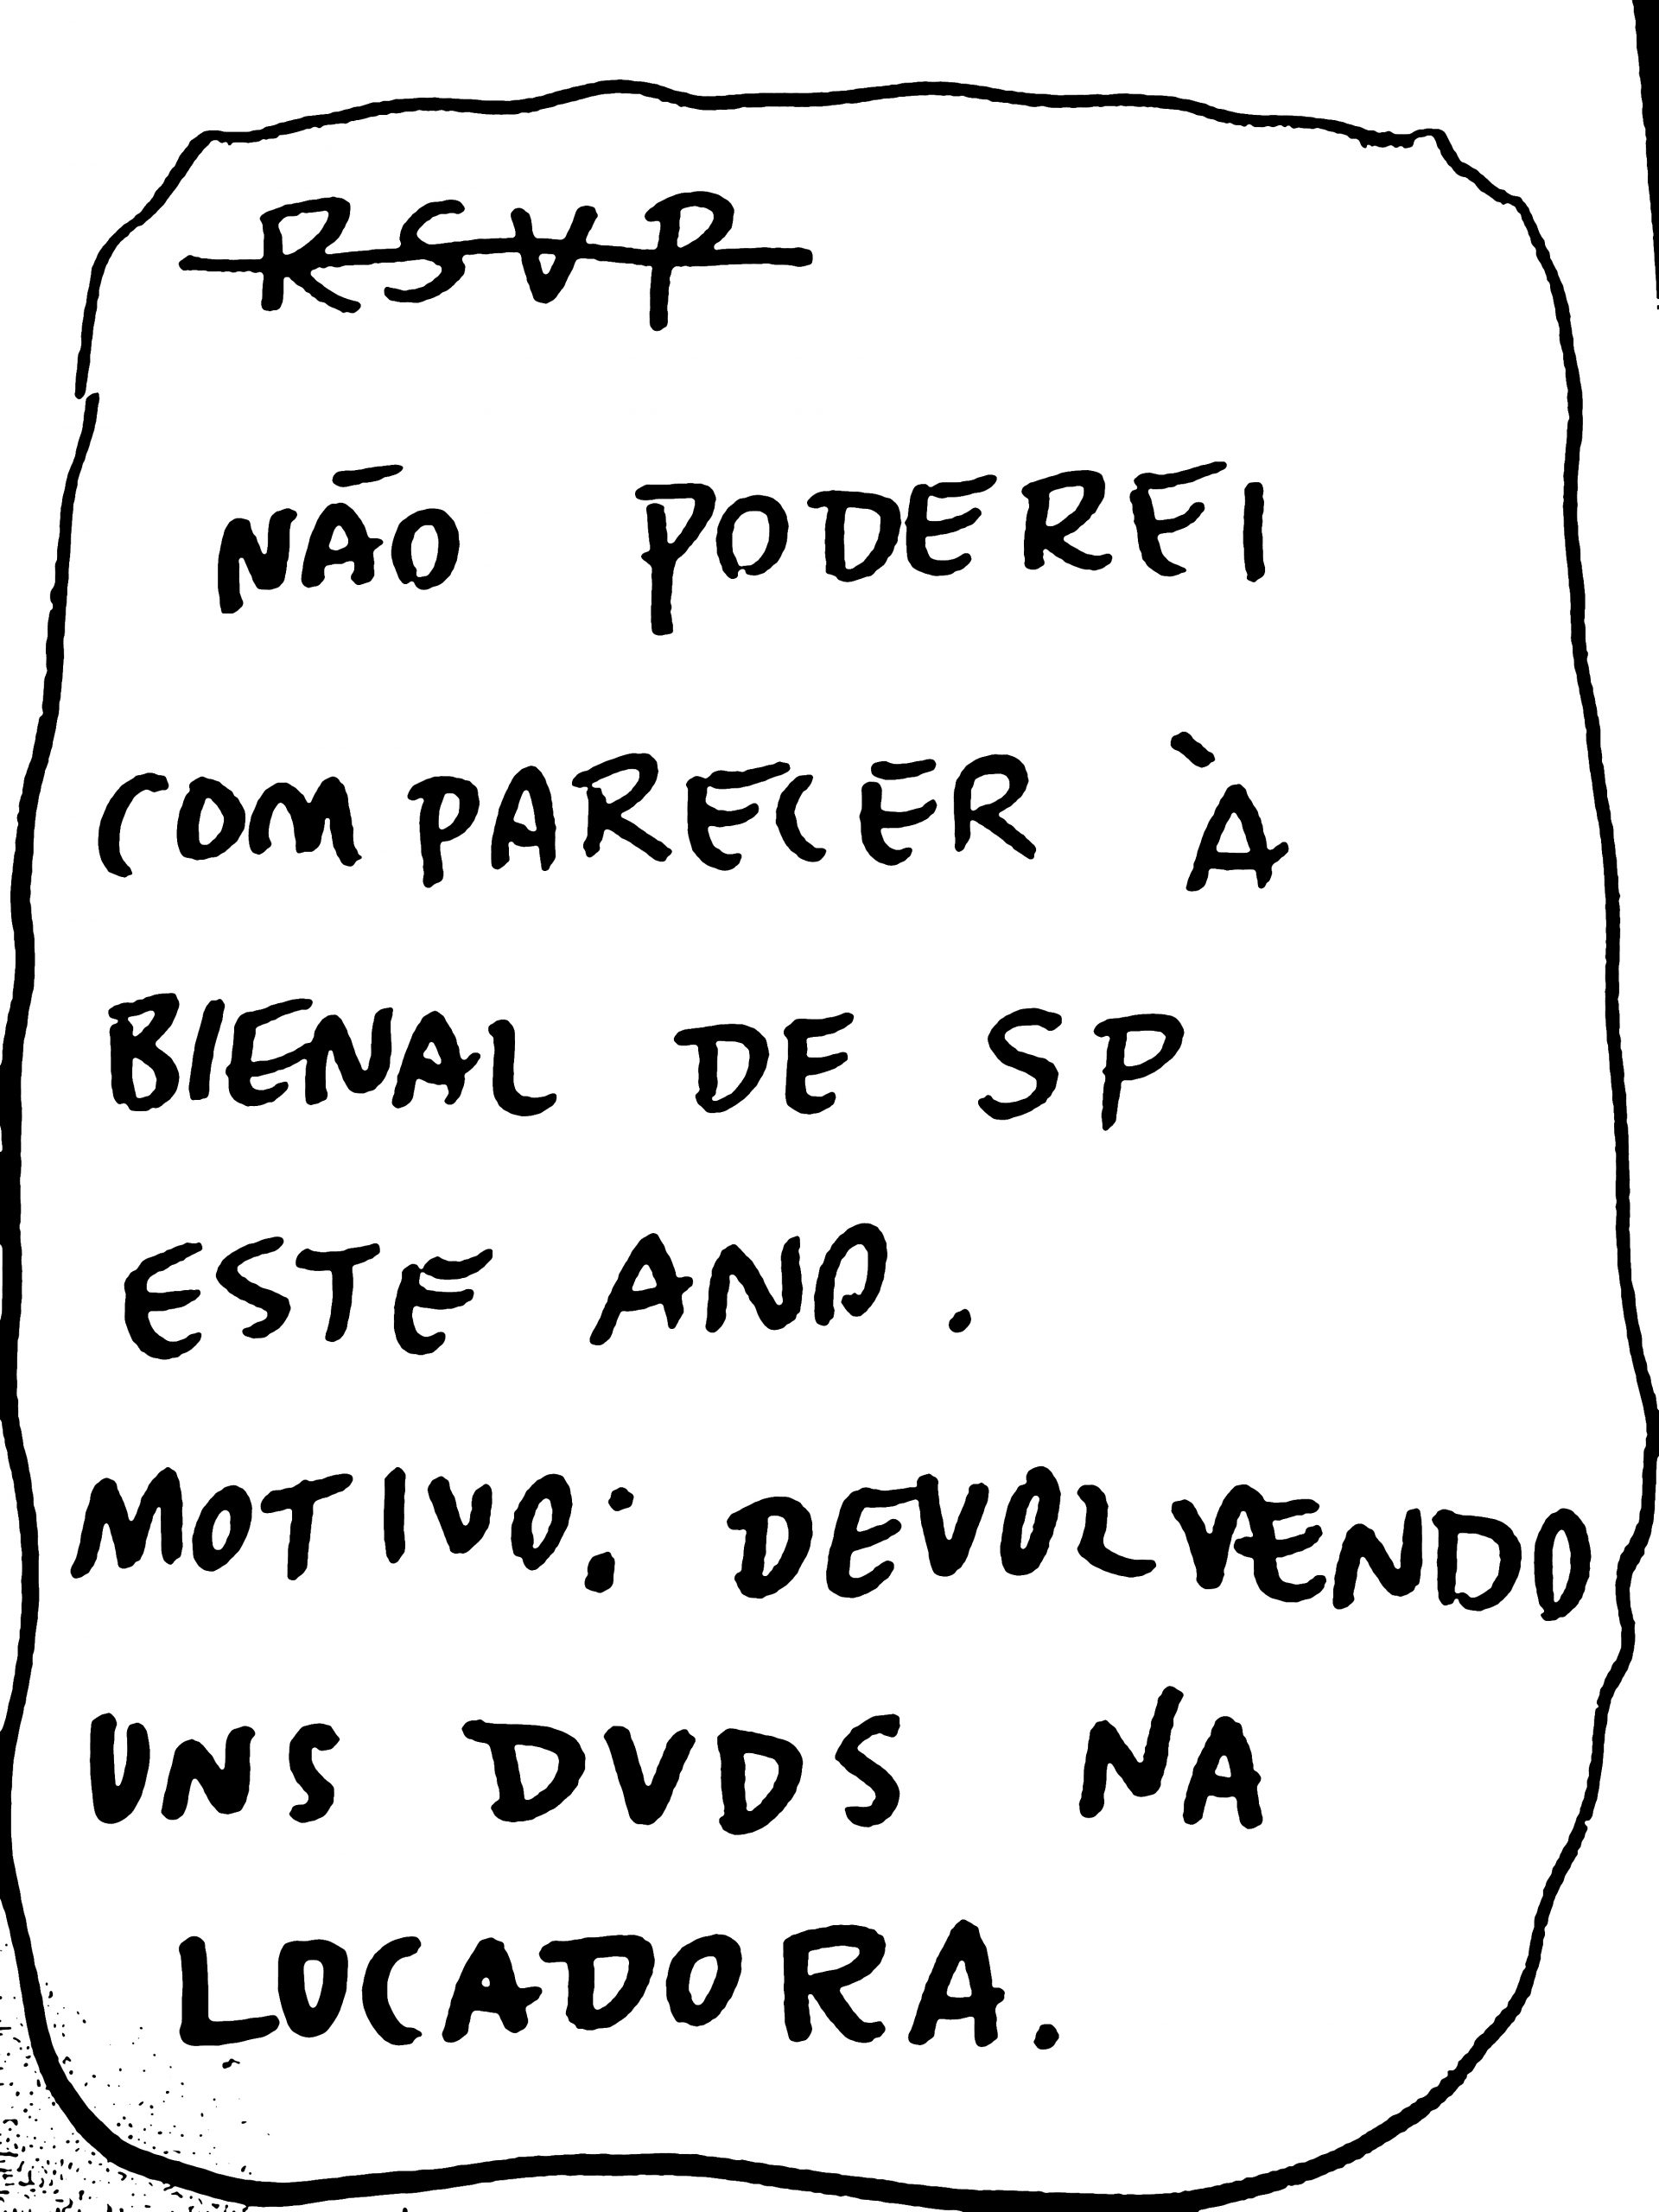 RSVP
NÃO PODEREI
COMPARECER À
BIENAL DE SP
ESTE ANO.
MOTIVO: DEVOLVENDO
UNS DVDS NA
LOCADORA.